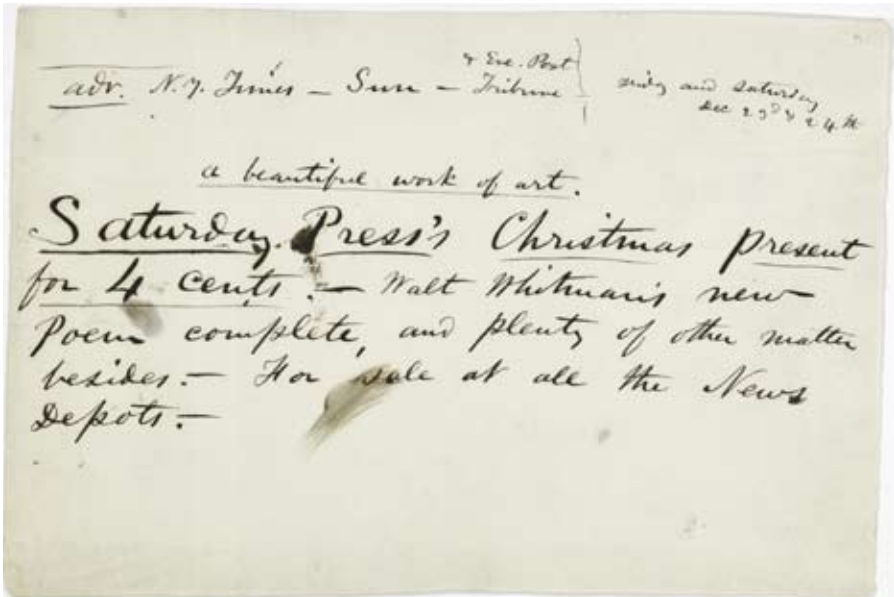 adv. N. Y. Times – Sun – Tribune
& Eve. Post
and Saturday
Dec 23d & 24th
a beautiful work of art.
Saturday Press's Christmas present
for 4 cents. – Walt Whitman's new
Poem complete, and plenty of other matter
besides. – For sale at all the News
Depots. –